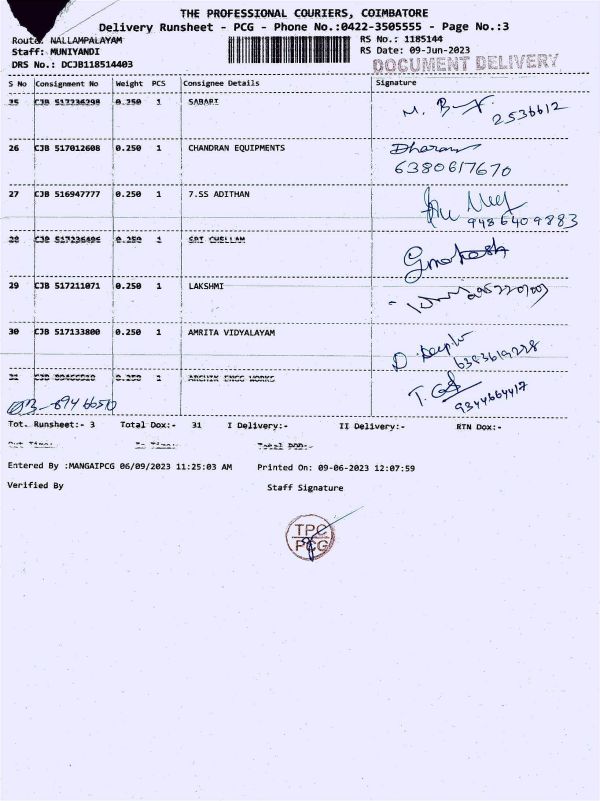 THE PROFESSIONAL COURIERS, COIMBATORE
Delivery Runsheet - PCG - Phone No.:0422-3505555 - Page No.:3
Route: NALLAMPALAYAM RS No.: 1185144
Staff: MUNIYANDI RS Date: 09-Jun-2023
DRS No.: DCJB118514403 DOCUMENT DELIVERY
S No Consignment No Weight PCS Consignee Details Signature
25 CJB 517236298 0.250 1 SABARI M. 2536612
26 CJB 517012608 0.250 1 CHANDRAN EQUIPMENTS Dharan
6380617670
27 CJB 516947777 0.250 1 7.SS ADITHAN
9486409883
28 CJB 517236496 0.250 1 SRI CHELLAM
29 CJB 517211071 0.250 1 LAKSHMI
30 CJB 517133800 0.250 1 AMRITA VIDYALAYAM D. Deepti
6393619228
31 0.250 1 ENGG WORKS T.
9344664417
Tot. Runsheet:- 3 Total Dox:- 31 I Delivery:- II Delivery:- RTN Dox:-
Out Time:- In Time:- Total POD:-
Entered By :MANGAIPCG 06/09/2023 11:25:03 AM Printed On: 09-06-2023 12:07:59
Verified By Staff Signature
TPC
PCG